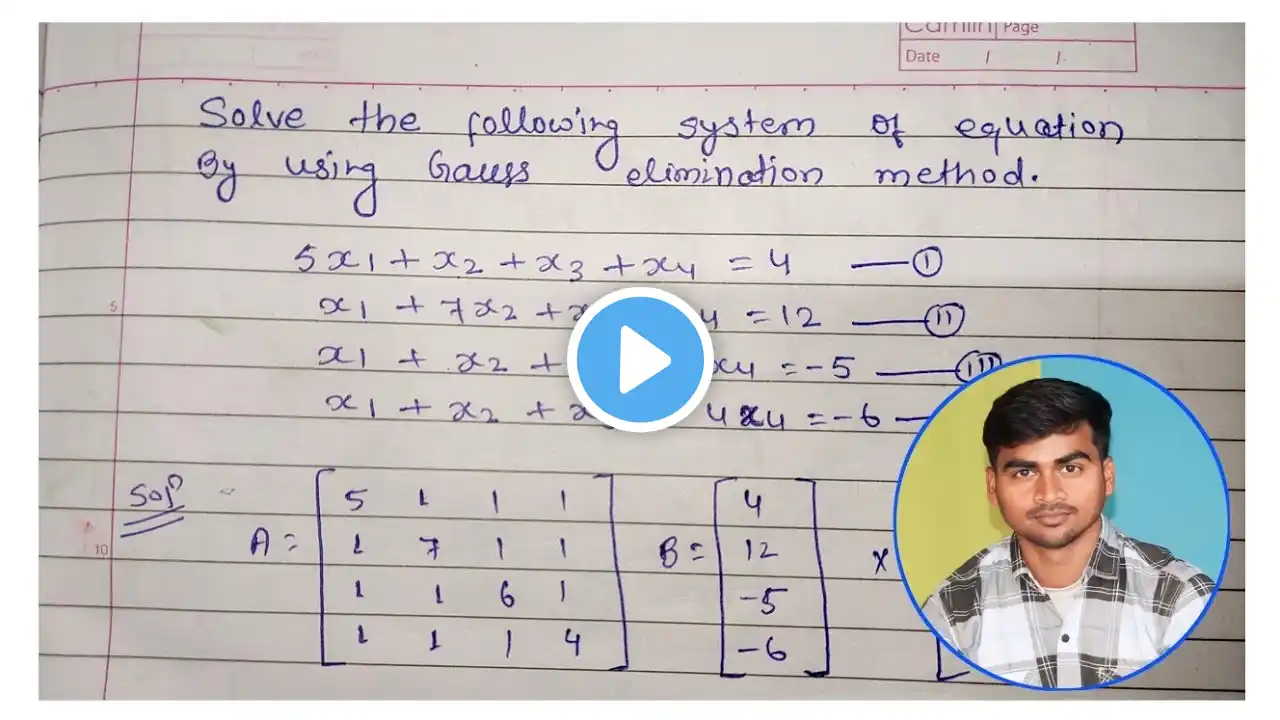 Camlin Page
Date / /
Solve the following system of equation
By using Gauss elimination method.
5x1 + x2 + x3 + x4 = 4 — (I)
x1 + 7x2 + = 12 — (II)
x1 + x2 + x4 = -5 — (III)
x1 + x2 + 4x4 = -6 —
5
Sol?
A = [ 5 1 1 1 B = [ 4 ]
10 1 7 1 1 12 X
1 1 6 1 -5
1 1 1 4 ] -6